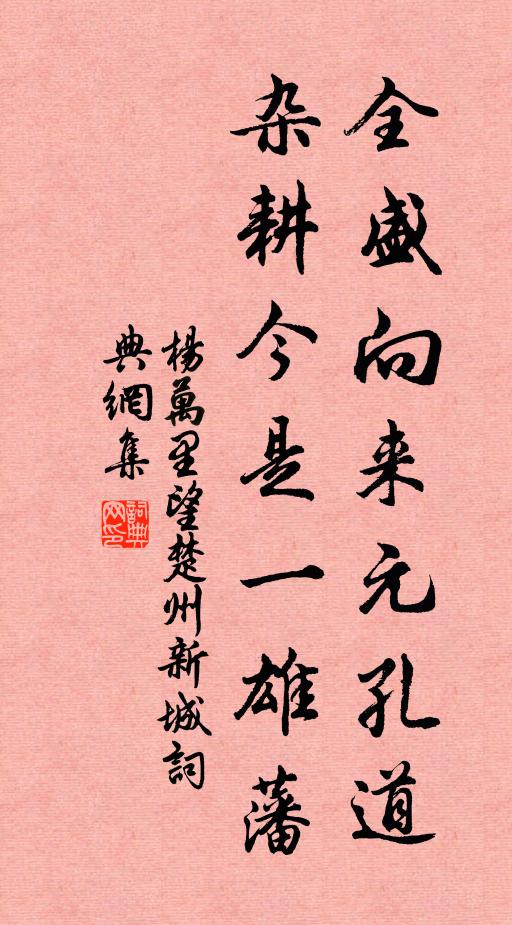 全盛向来元孔道
杂耕今是一雄藩
楊萬里望楚州新城詞
典網集
詞典网印